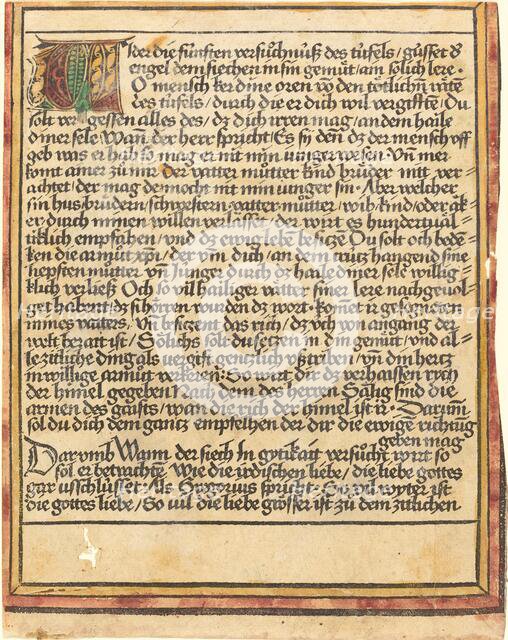 Wider die fünfften versuͦchnuſß des tüfels / güſſet dʼ
engel dem ſiechen in ſin gemüt / ain ſolich lere ·
O menſch ker dine oren vō den tötlichn̄ rāten
des tüfels / durch die er dich wil vergifftē / Du
ſolt vergeſſen alles des / dz dich irren mag / an dem haile
diner ſele Wan̄ der herr ſpricht / Es ſy den̄ dz der menſch vff
geb was er hab ſo mag er nit min iunger weſen · Vn̄ wer
komt zu mir der vatter mütter kind brüder nitt ver
achtet / der mag dennocht nit min iunger ſin · Aber welcher
ſin hus / brüdern / ſchweſtern / vatter / mütter / wib / kind / oder āk
er durch minen willen verlaſſet / der wirt es hundertual=
tiklich empfahen / vnd dz ewig lebē beſitzen Du ſolt och bedē=
ken die armüt xp̄i / der vm̄ dich / an dem crütz hangend ſine
liepſten mütter vn̄ Junger durch dz haile diner ſele willig=
klich verließ Och ſo vil hailiger vätter ſiner lere nachgeuol=
get habent / dz ſi hörren wurden dz wort · komēt ir geſegnotten
mines vaters / vn̄ beſitzent das rich / dz vch von angang der
welt berait iſt / Sölichs ſolt du ſetzen in din gemüt / vnd al=
le zitliche ding als vergift gentzlich vſſtriben / vn̄ din hertz
in willige armüt verkeren · So wirt dir dz verhaiſſen rych
der himel gegeben Nach dem des herren Sälig ſind die
armen des gaiſts / wan die rich der himel iſt ir · Darum̄
ſol du dich dem gantz empfelhen der dir die ewige richtūg
geben mag
Dar vmb Wann der ſiech In gytikait verſücht wirt ſo
ſöl er betrachtē Wie die irdiſchen liebe / die liebe gottes
gar vſſchlüſſet / Als Gregorius ſpricht So vil wytter iſt
die gottes liebe / So vil die liebe gröſſer iſt zu dem zitlichen